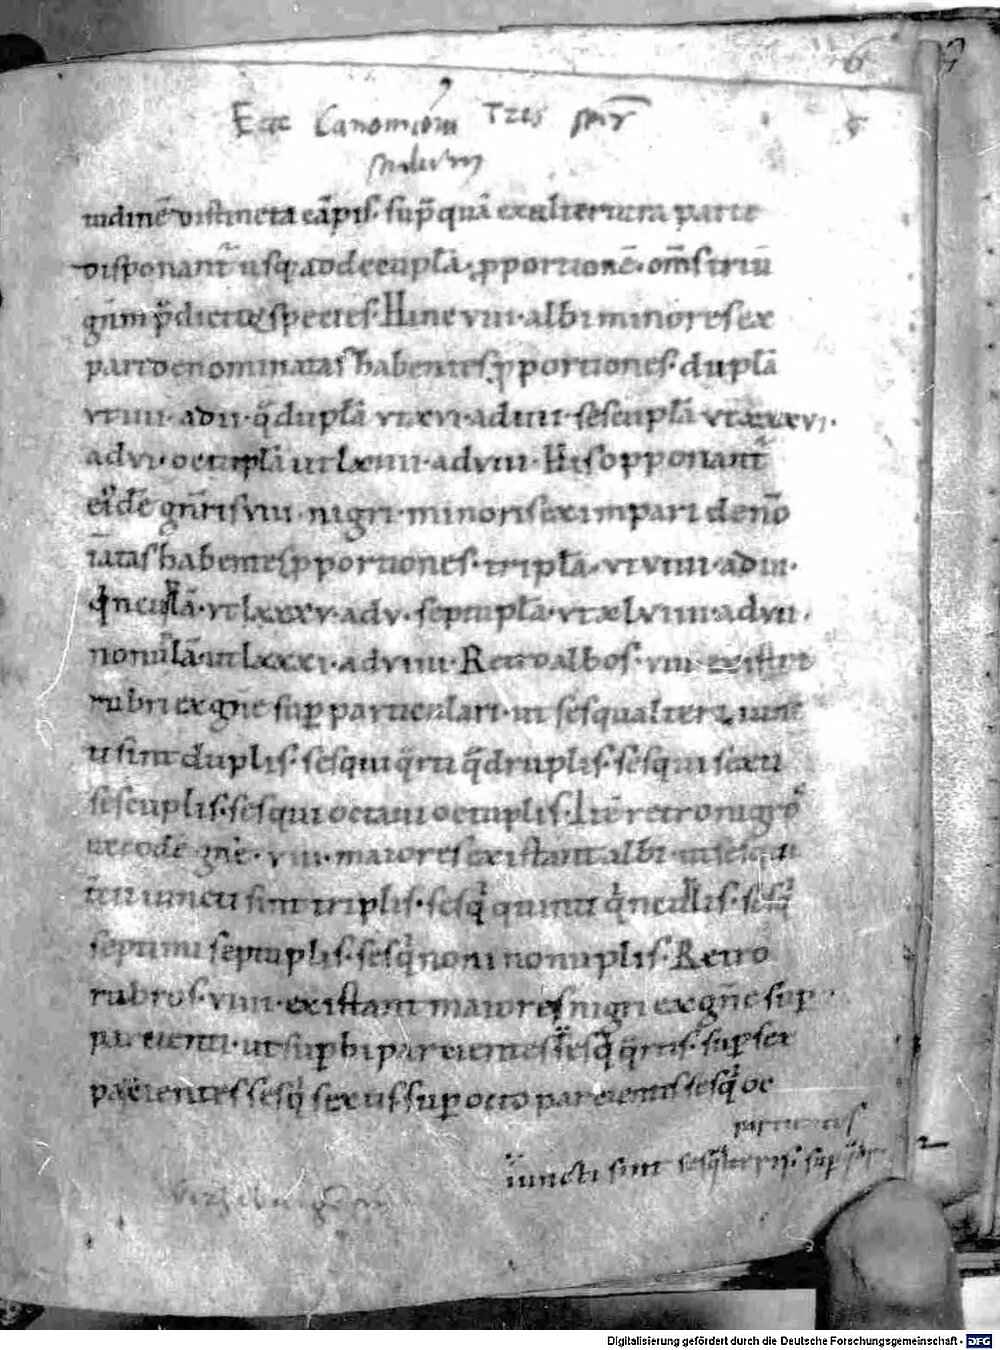 6
5
Canonicorum
tudinē distincta cāpis. sup̄ quā ex alterutra parte
disponant᷑ usq; ad decuplā ꝓportionē. om̄s triū
gn̄m p̄dictę species. Hinc VIII. albi minores ex
pari denominatas habentes ꝓportiones. duplā
vt IIII. ad II. q̄druplā vt XVI. ad IIII. sescuplā vt XXXVI.
ad VI. octuplā ut LXIIII. ad VIII. His opponant᷑
eiꝰdē gn̄ris VIII. nigri. minoris ex impari denō
īatas habentes ꝓportiones. triplā. vt VIIII. ad III.
q̇ncuplā. vt XXV. ad V. septuplā. vt XLVIIII. ad VII.
nonuplā. ut LXXXI. ad VIIII. Retro albos. VIII. existāt
rubri ex gn̄e suꝑparticulari. ut sesqualteri, iunc
ti sint duplis. sesquiq̄rti q̄druplis. sesqui sexti
sescuplis. sesqui octaui octuplis. Itē retro nigros
ex eodē gn̄e. VIII. maiores existant albi. ut sesqui
t̄tii iuncti sint triplis. sesq̇ quinti q̇ncuplis. sesq̇
septimi septuplis. sesq̇ noni nonuplis. Retro
rubros. VIII. existant maiores nigri ex gn̄e suꝑ
partienti. ut suꝑbipartientes sesq̇ q̄rtis. suꝑsex
partientes sesq̇ sextis suꝑ octo partientes sesq̇ oc
partientes
iuncti sint sesq̄lteris. suꝑ q̄dr
Digitalisierung gefördert durch die Deutsche Forschungsgemeinschaft - DFG